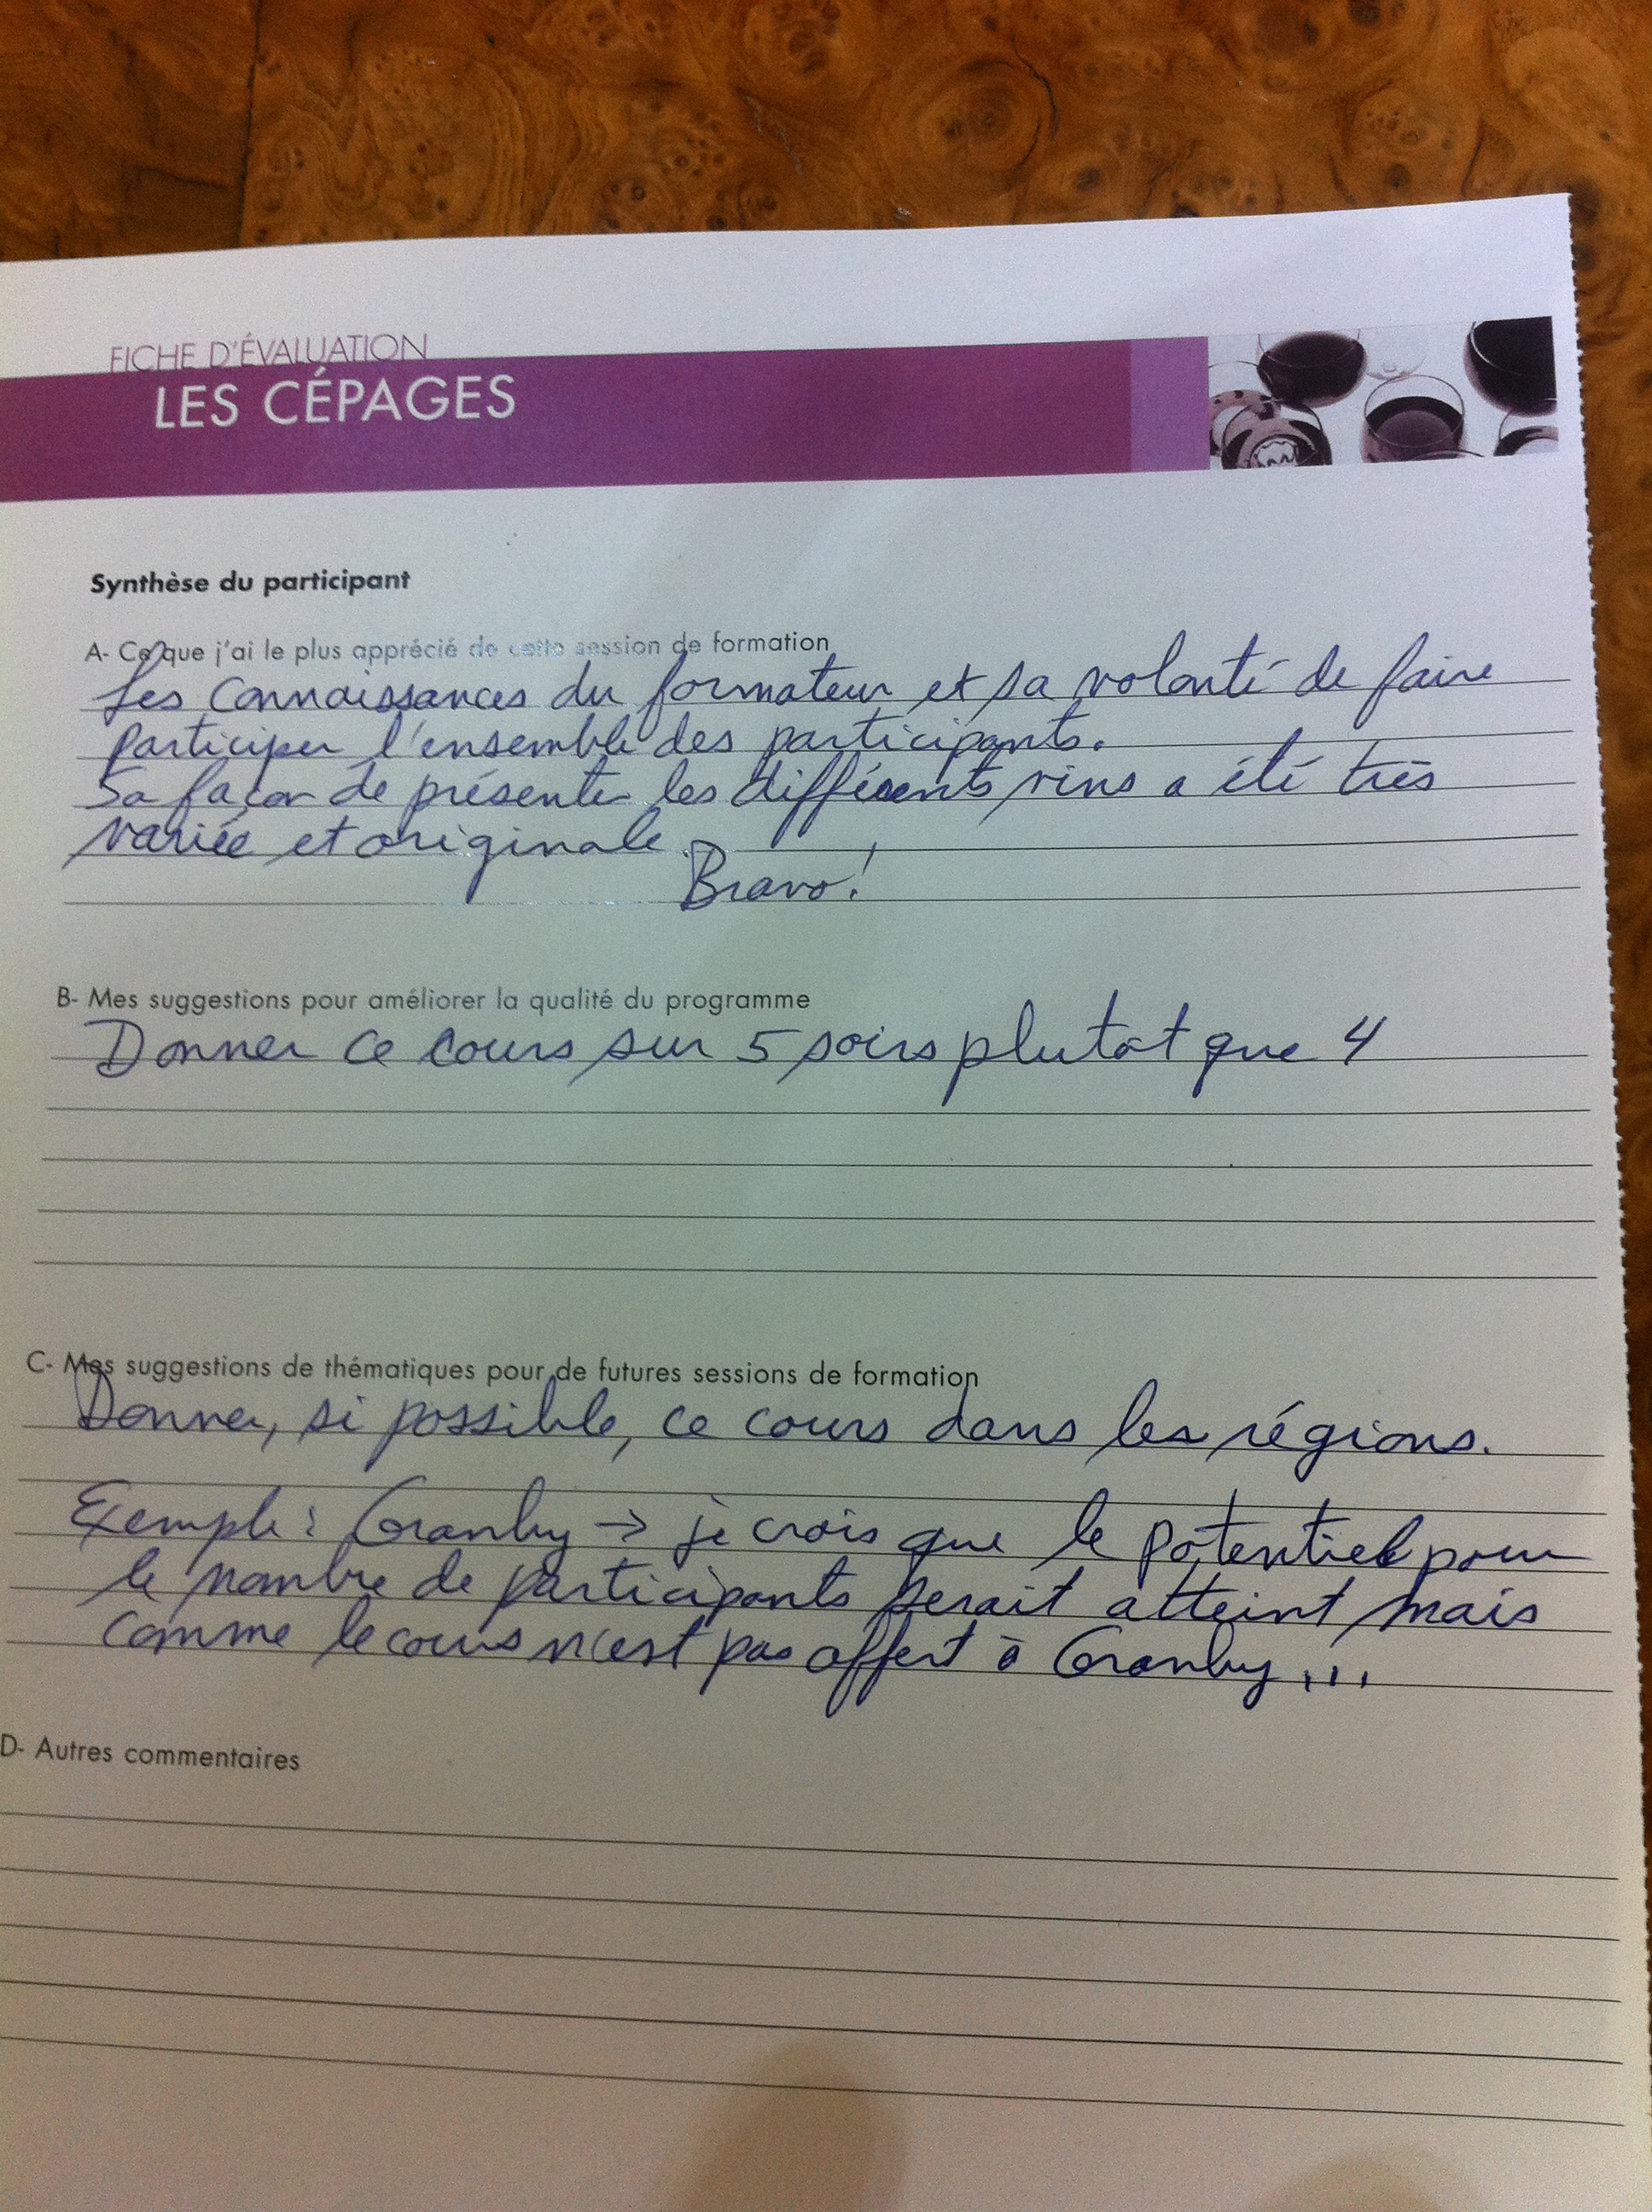 FICHE D'ÉVALUATION
LES CÉPAGES
Synthèse du participant
A- Ce que j'ai le plus apprécié de cette session de formation
Les connaissances du formateur et sa volonté de faire
participer l'ensemble des participants.
Sa façon de présenter les différents vins a été très
variée et originale.
Bravo!
B- Mes suggestions pour améliorer la qualité du programme
Donner ce cours sur 5 soirs plutôt que 4
C- Mes suggestions de thématiques pour de futures sessions de formation
Donner, si possible, ce cours dans les régions.
Exemple: Granby → je crois que le potentiel pour
le nombre de participants serait atteint mais
comme le cours n'est pas offert à Granby...
D- Autres commentaires